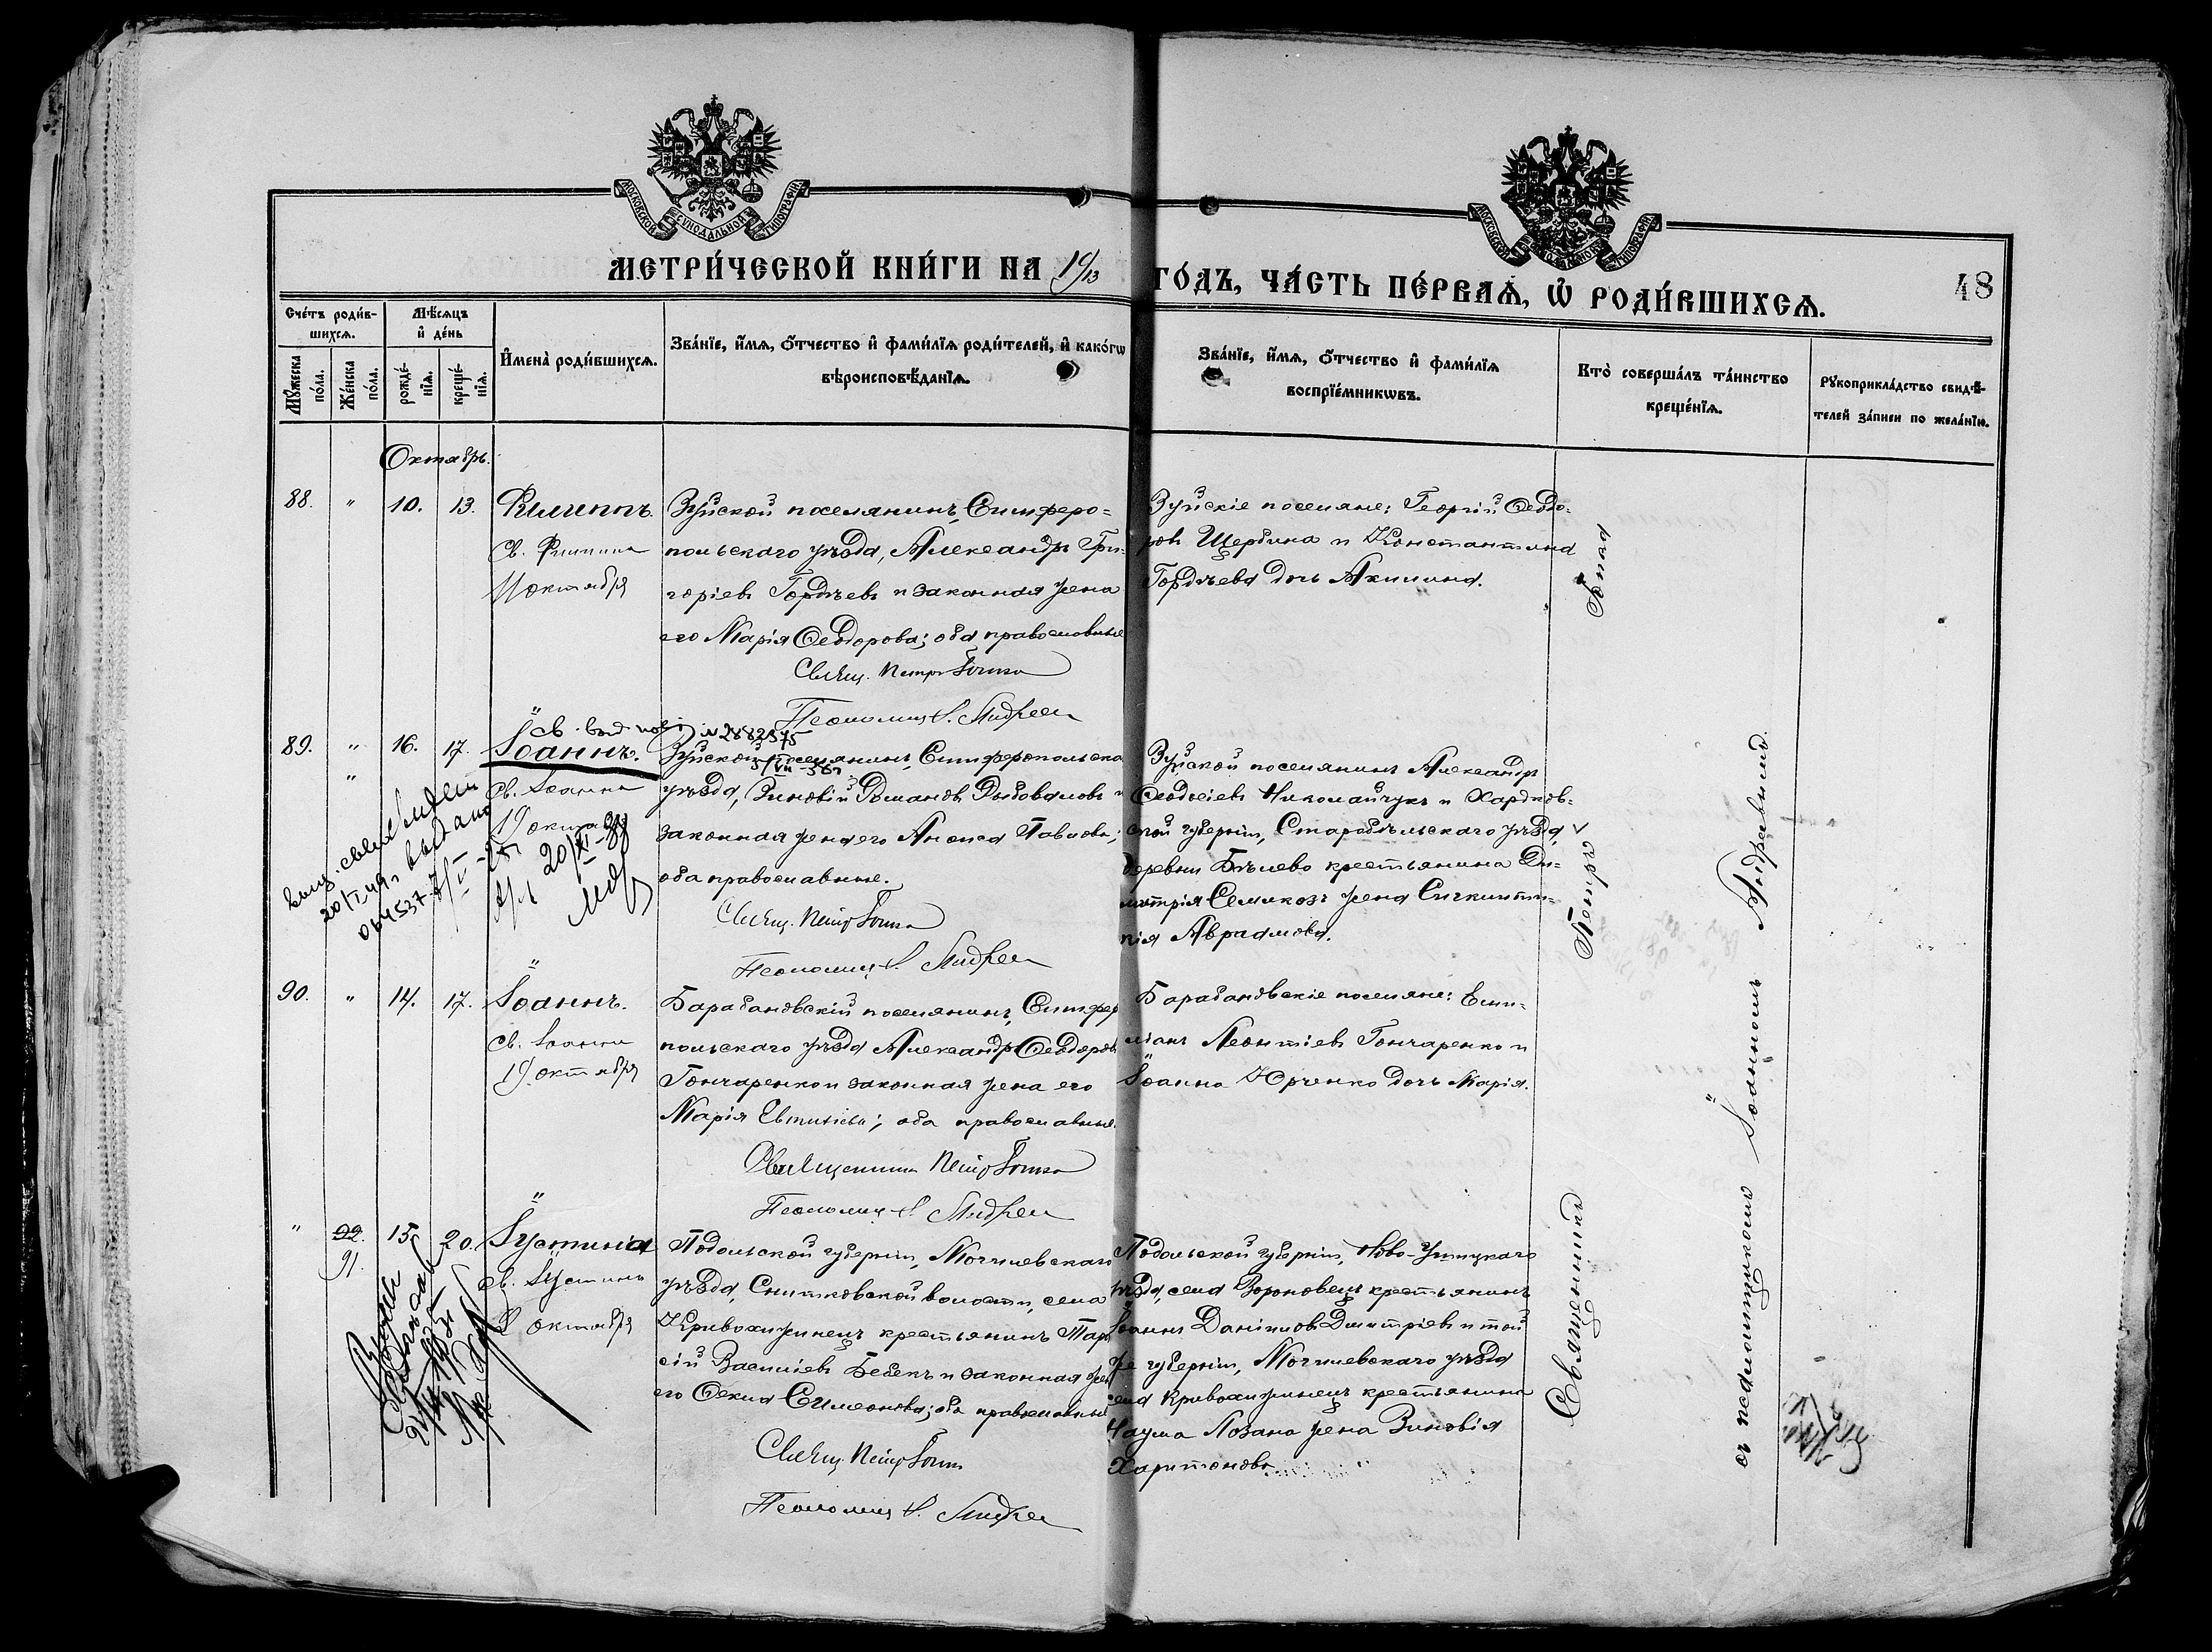 МОСКОВСКОЙ СУНОДАЛЬНОЙ ТИПОГРАФІИ
МЕТРИ́ЧЕСКОЙ КНИ́ГИ НА 1913
ГО́ДЪ, ЧА́СТЬ ПЕ́РВАѦ, Ѡ҆ РОДИ́ВШИХСѦ.
48
Сче́тъ роди́в-
шихсѧ.
Мѣ́сѧцъ
и҆ де́нь
Мꙋ́жеска
по́ла.
Же́нска
по́ла.
рожде́-
нїѧ.
креще́-
нїѧ.
И҆мена̀ роди́вшихсѧ.
Зва́нїе, и҆́мѧ, ѻ҆́тчество и҆ фами́лїѧ роди́телей, и҆ како́гѡ
вѣроисповѣ́данїѧ.
Зва́нїе, и҆́мѧ, ѻ҆́тчество и҆ фами́лїѧ
воспрїе́мникѡвъ.
Кто̀ соверша́лъ та́инство
креще́нїѧ.
Рꙋкоприкла́дство свидѣ́-
телей за́писи по жела́нїю.
Октябрь.
88. " 10. 13. Филиппъ.
Св. Филиппа
11 октября
Зуйской поселянинъ, Симферо=
польскаго уѣзда, Александръ Гри-
горіевъ Гордѣевъ и законная жена
его Марія Ѳеодорова; оба православные
Свящ. Петръ Готка
Псаломщ. І. Андреев
Зуйскіе поселяне: Георгій Ѳеодо-
ровъ Щербина и Константина
Гордѣева дочь Акилина.
89. " 16. 17. Іоаннъ.
"
№ 2882375
Св. Іоанна
19 октября
20/XI-
Зуйской поселянинъ, Симферопольска
уѣзда, Зиновій Романовъ и
законная жена его Анна Павлова;
оба православные.
Свящ. Петръ Готка
Псаломщ. І. Андреев
Зуйской поселянинъ Александръ
Ѳеодосіевъ Николайчукъ и Харьков-
ской губерніи, Старобѣльскаго уѣзда,
деревни Бѣлево крестьянина Ди-
митрія Семикозъ жена
Аврамова.
90. " 14. 17. Іоаннъ.
Св. Іоанна
19 октября
Барабановскій поселянинъ, Симферо
польскаго уѣзда Александръ Ѳеодоровъ
Гончаренко и законная жена его
Марія Евтихіева; оба православные.
Священникъ Петръ Готка
Псаломщ. І. Андреев
Барабановскіе поселяне: Еми-
ліанъ Леонтіевъ Гончаренко и
Іоанна Юрченко дочь Марія.
" 92. 15. 20. Іустинія
91.
св. Іустины
2 октября
Подольской губерніи, Могилевскаго
уѣзда, Снитковской волости, села
Кривохижинецъ крестьянинъ Тара
сій Василіевъ Бебекъ и законная жена
его Ѳекла Симеонова; оба православные
Свящ. Петръ Готка
Псаломщ. І. Андреев
Подольской губерніи, Ново-Ушицкаго
уѣзда, села Вороновецъ крестьянинъ
Іоаннъ Даніиловъ Димитріевъ и той
же губерніи, Могилевскаго уѣзда
села Кривохижинецъ крестьянина
Наума Лозана жена Зиновія
Харитонова.
Священникъ Петръ Готка
съ псаломщикомъ Іоанномъ Андреевымъ.